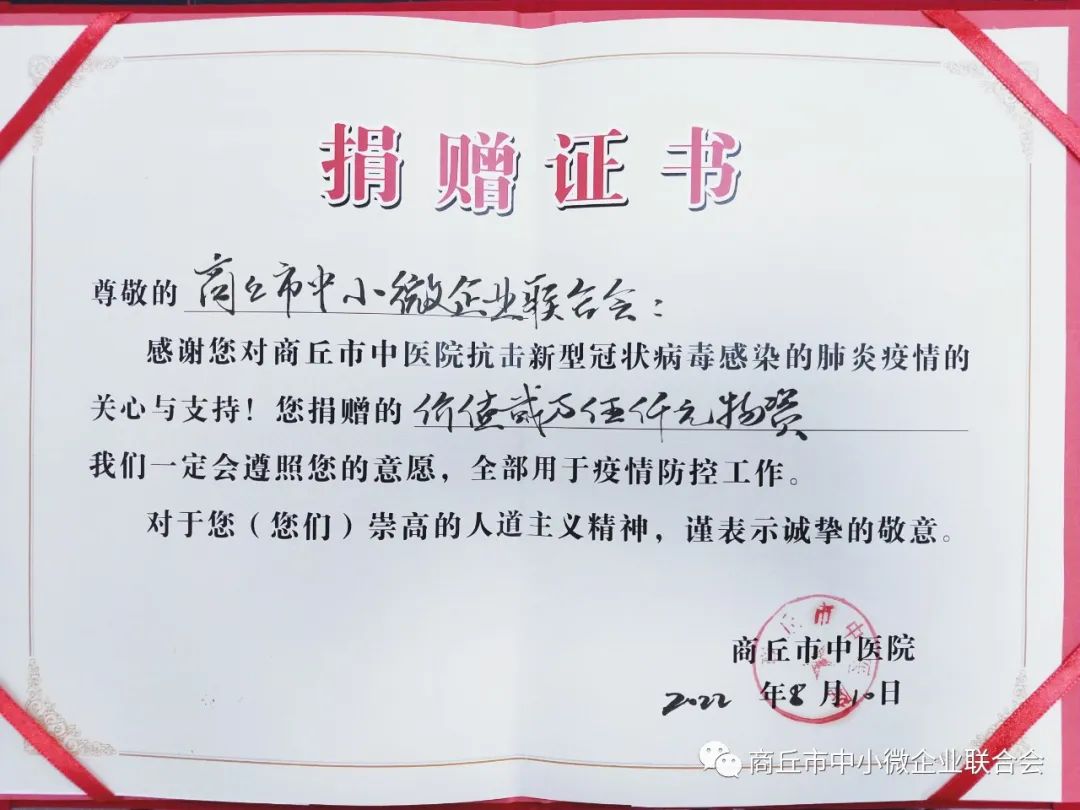 捐赠证书
尊敬的 商丘市中小微企业联合会：
感谢您对商丘市中医院抗击新型冠状病毒感染的肺炎疫情的
关心与支持！您捐赠的 价值贰万伍仟元物资
我们一定会遵照您的意愿，全部用于疫情防控工作。
对于您（您们）崇高的人道主义精神，谨表示诚挚的敬意。
商丘市中医院
2022 年8月10日
商丘市中小微企业联合会